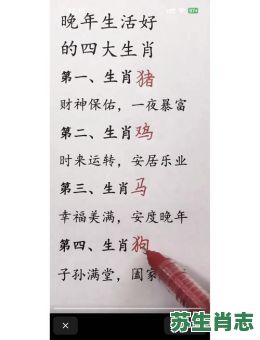 晚年生活好
的四大生肖
第一、生肖猪
财神保佑，一夜暴富
第二、生肖鸡
时来运转，安居乐业
第三、生肖马
幸福美满，安度晚年
第四、生肖狗
子孙满堂，阖家
苏生肖志